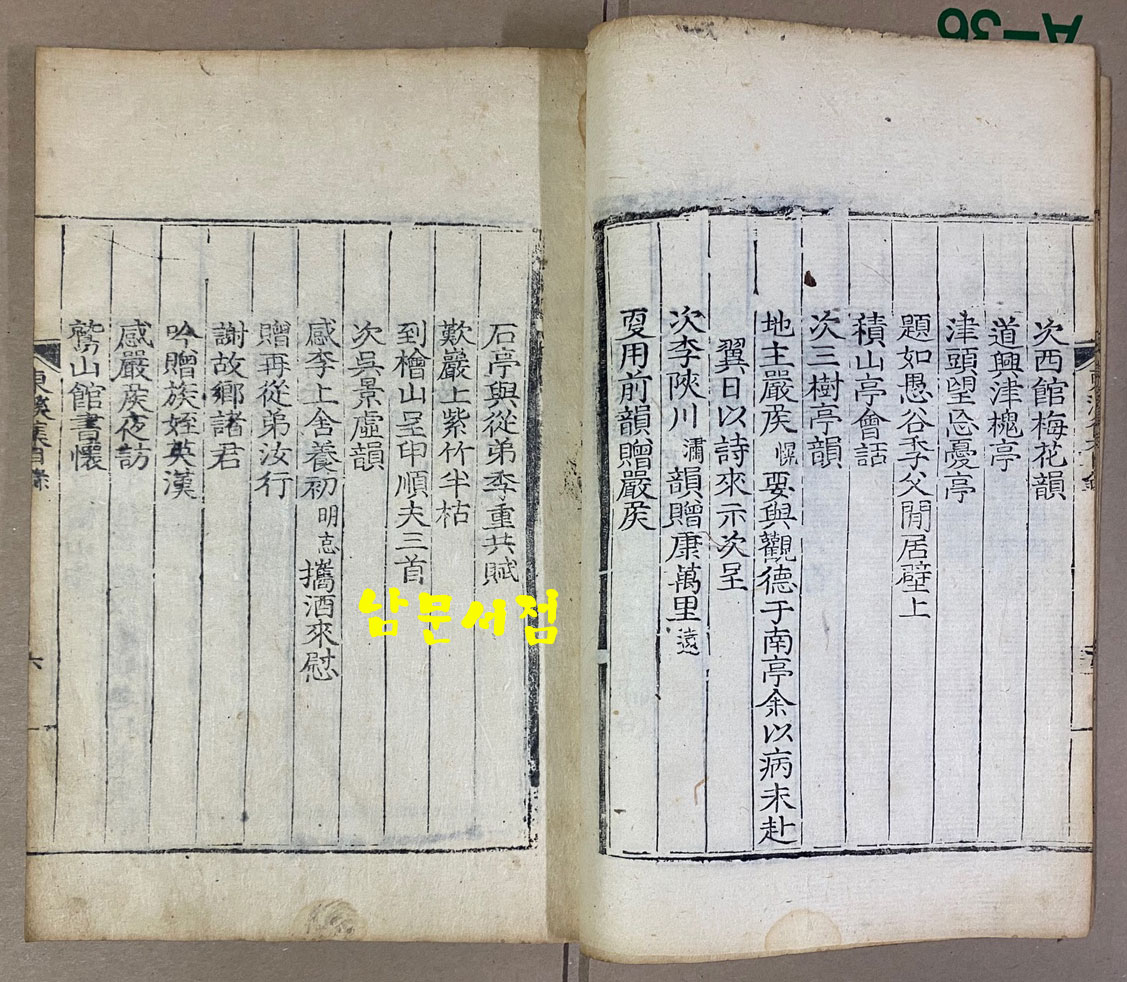 A-36
次西館梅花韻
道興津槐亭
津頭望忘憂亭
題如愚谷季父閒居壁上
積山亭會話
次三樹亭韻
地主嚴矦 愰 要與觀德于南亭余以病未赴
翼日以詩來示次呈
次李陜川 潚 韻贈康萬里 遠
更用前韻贈嚴矦
石亭與從弟季重共賦
歎巖上紫竹半枯
到檜山呈申順夫三首
次吳景虛韻
感李上舍養初 明怘 攜酒來慰
贈再從弟汝行
謝故鄉諸君
吟贈族姪英漢
感嚴矦夜訪
鷲山館書懷
集目錄
六
남문서점